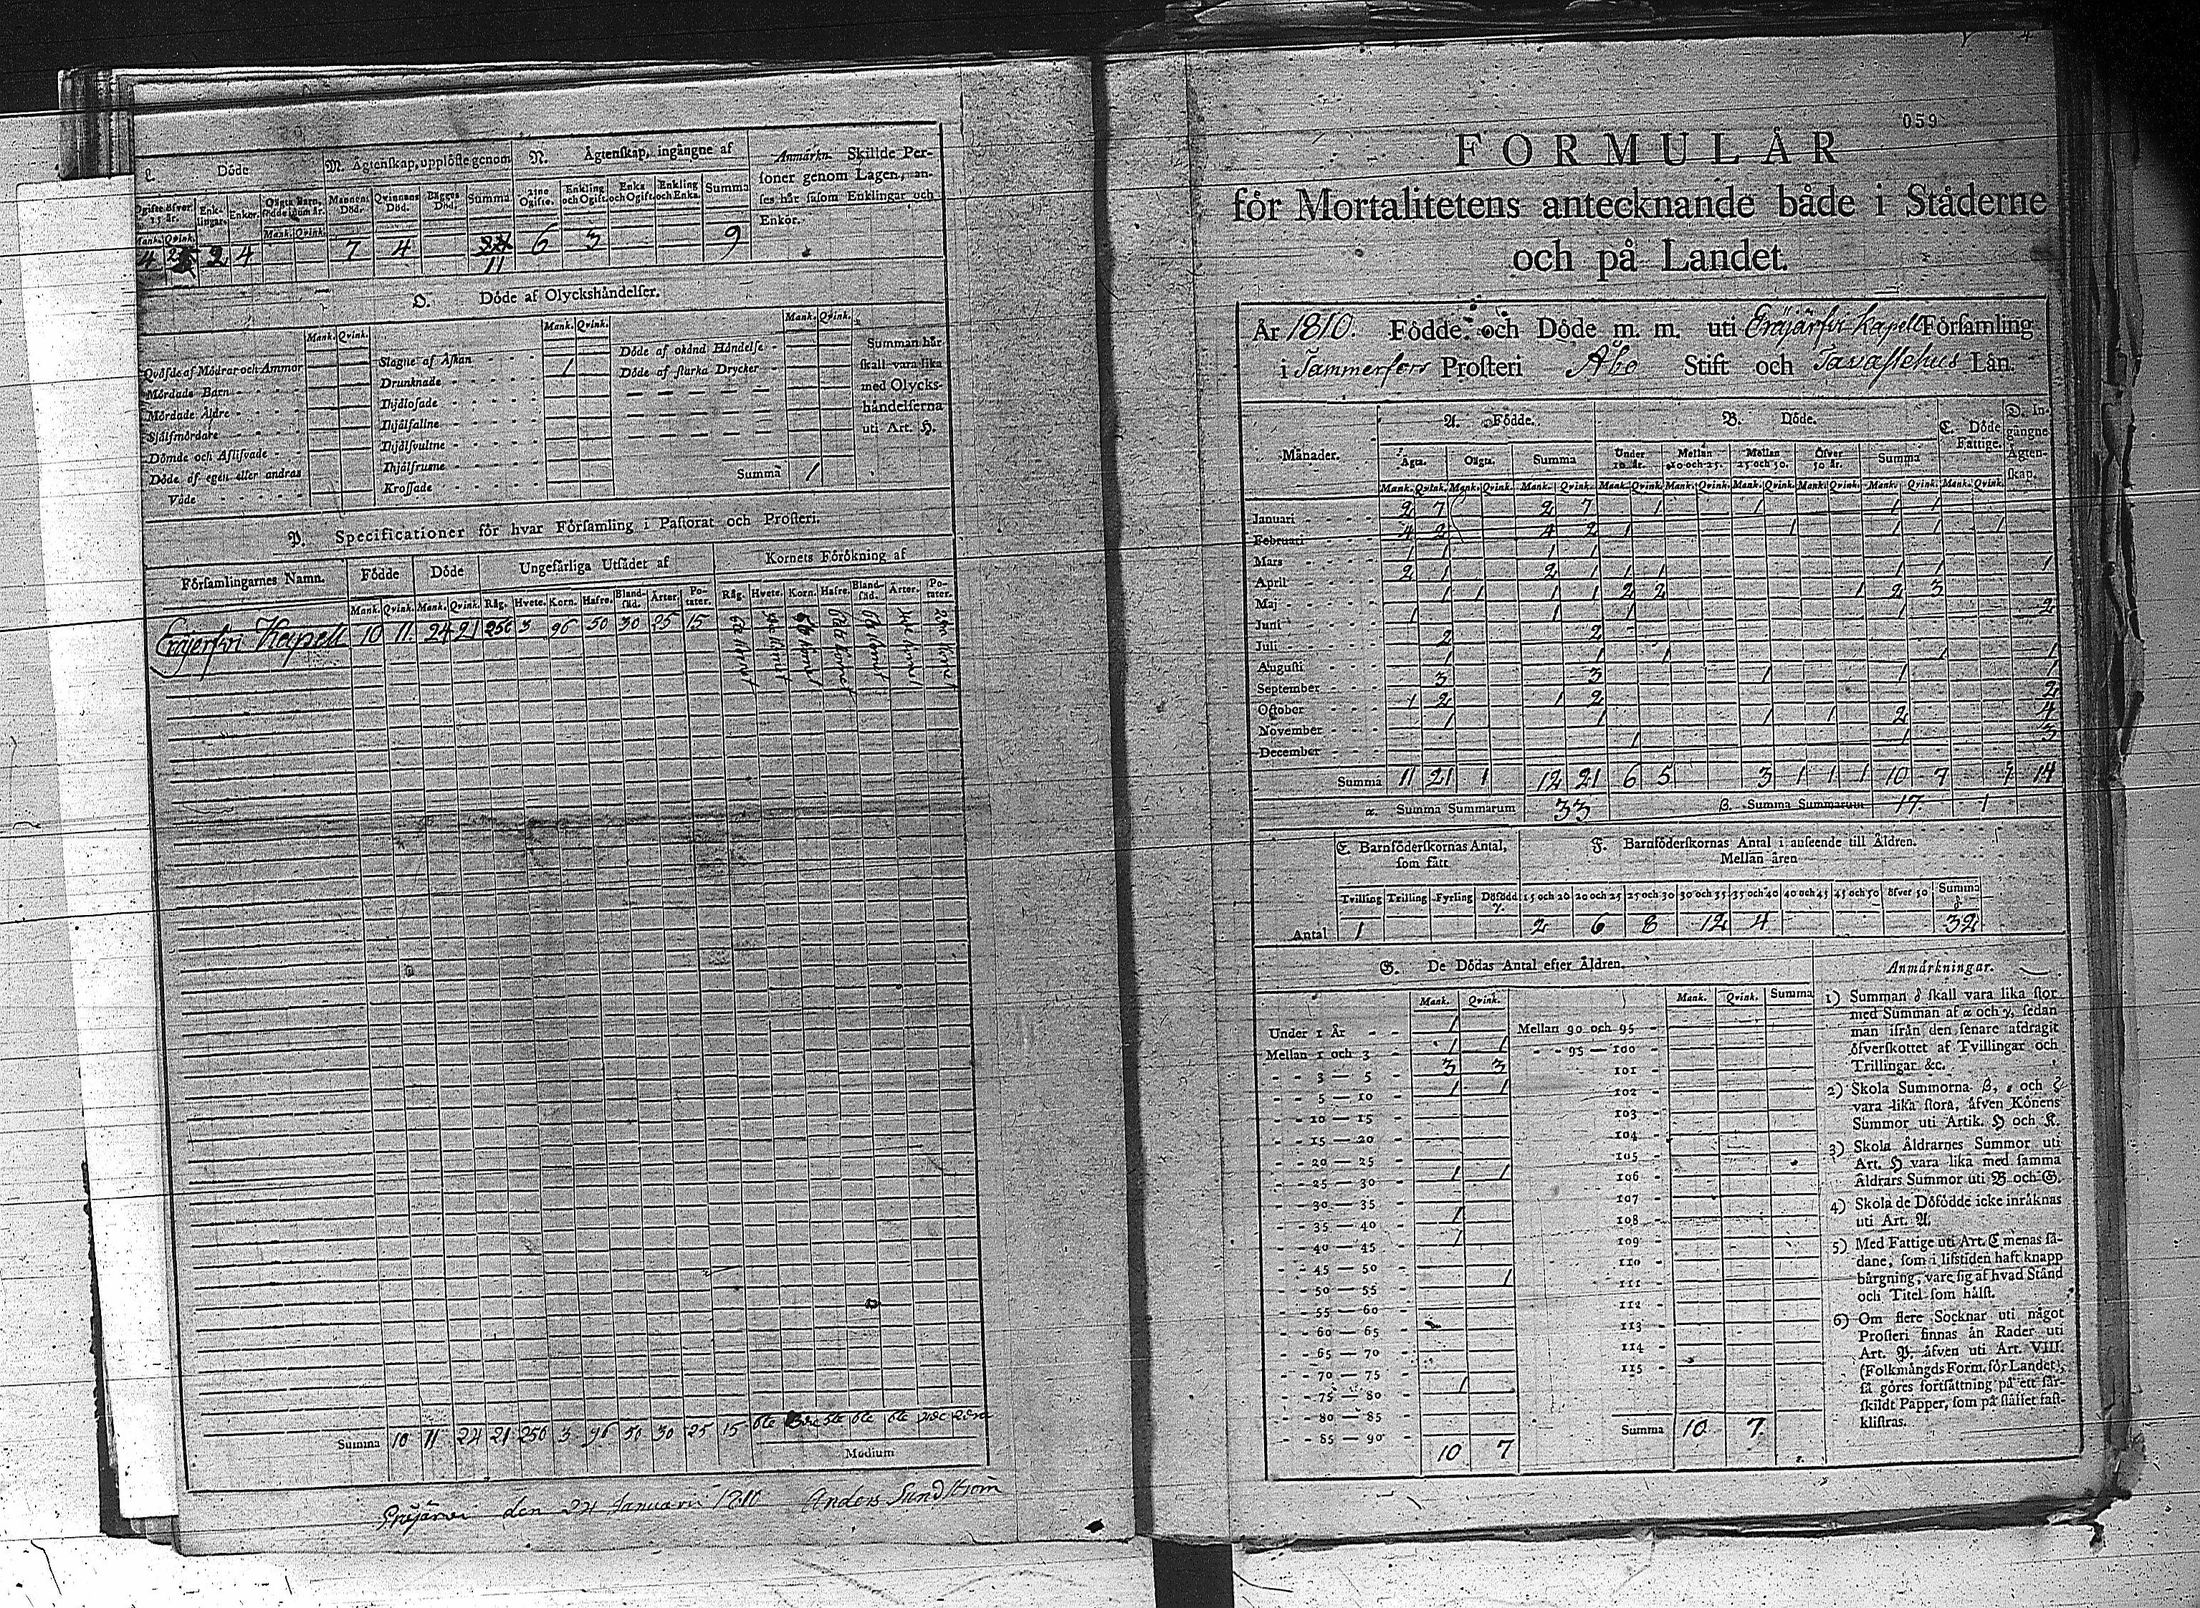 L. Döde
Ogifte öfver 15 år. Enklingar. Enkor. Oägta Barn, födde inom år.
Mank. Qvink. Mank. Qvink.
4 2 4
M. Ägtenskap, upplöste genom
Mannens Död. Qvinnans Död. Bägges Död. Summa
7 4 11
N. Ägtenskap, ingångne af
Enkling och Ogift. Enka och Ogift. Enkling och Enka. Summa
6 3 9
Anmärkn. Skillde Personer genom Lagen, anses här såsom Enklingar och
Enkor.
O. Döde af Olyckshändelser.
Mank. Qvink. Mank. Qvink. Mank. Qvink.
Qväfde af Mödrar och Ammor
Mördade Barn
Mördade Äldre
Självmördare
Dömde och Aflifvade
Döde af egen eller andras
Våde
Slagne af Åskan
Drunknade 1
Ihjälfrusne
Krossade
Döde af okänd Händelse
Döde af starka Drycker
Summa 1
Summan här
skall vara lika
med Olycks-
händelserna
uti Art. H.
P. Specificationer för hvar Församling i Pastorat och Prosteri.
Församlingarnes Namn. Födde Döde Ungefärliga Utsädet af Kornets Förökning af
Mank. Qvink. Mank. Qvink. Råg. Hvete. Korn. Hafre. Blandsäd. Ärter. Potater. Råg. Hvete. Korn. Hafre. Blandsäd. Ärter. Potater.
Kapell 10 11 24 21 250 3 96 50 30 25 15
Summa 10 11 24 21 250 3 96 50 30 25 15
Medium
den 24 Januarii 1810 Anders Sundström
059
FORMULÄR
för Mortalitetens antecknande både i Städerne
och på Landet.
År 1810. Födde och Döde m. m. uti Eräjärfvi Kapell Församling
i Tammerfors Prosteri Åbo Stift och Tavastehus Län.
Månader. A. Födde. B. Döde. C. Döde Fattige. D. Ingångne Ägtenskap.
Ägta. Oägta. Summa Under 10 år. Mellan 10 och 25. Mellan 25 och 50. Öfver 50 år. Summa
Mank. Qvink. Mank. Qvink. Mank. Qvink. Mank. Qvink. Mank. Qvink. Mank. Qvink. Mank. Qvink. Mank. Qvink. Mank. Qvink.
Januari 2 7 2 7 1 1 1 1
Februari 4 2 4 2 1 1 1 1 1
Mars 1 1 1 1
April 2 1 2 1 1 1 1 1 1
Maj 1 1 1 1 2 2 1 2 3
Juni 1 1 1 1 2
Juli 2 2
Augusti 1 1 1 1 1
September 3 3 1 1 1
October 1 2 1 2 2
November 1 1 1 1 2 4
December 1 1 3
Summa 11 21 1 12 21 6 5 3 1 1 1 10 7 14
α. Summa Summarum 33 β. Summa Summarum 17. 1
E. Barnföderskornas Antal,
som fått
Tvilling Trilling Fyrling Dödfödd γ.
F. Barnföderskornas Antal i anseende till Åldren.
Mellan åren
15 och 20 20 och 25 25 och 30 30 och 35 35 och 40 40 och 45 45 och 50 öfver 50 Summa δ
Antal 1 2 6 8 12 4 32
G. De Dödas Antal efter Åldren.
Mank. Qvink. Mank. Qvink. Summa
Under 1 År 1
Mellan 1 och 3 1 1
3 — 5 3 3
5 — 10 1 1
10 — 15
15 — 20
20 — 25
25 — 30 1 1
30 — 35
35 — 40 1
40 — 45 1
45 — 50
50 — 55 1
55 — 60
60 — 65
65 — 70
70 — 75
75 — 80 1
80 — 85
85 — 90
10 7
Mellan 90 och 95
95 — 100
101
102
103
104
105
106
107
108
109
110
111
112
113
114
115
Summa 10 7
Anmärkningar.
1) Summan δ skall vara lika stor
med Summan af α och γ, sedan
man ifrån den senare afdragit
öfverskottet af Tvillingar och
Trillingar &c.
2) Skola Summorna β, ε och ζ
vara lika stora, äfven Könens
Summor uti Artik. H och K.
3) Skola Åldrarnes Summor uti
Art. H vara lika med samma
Åldrars Summor uti B och G.
4) Skola de Dödfödde icke inräknas
uti Art. A.
5) Med Fattige uti Art. C menas så-
dane, som i lifstiden haft knapp
bärgning, vare sig af hvad Stånd
och Titel som hälst.
6) Om flere Socknar uti något
Prosteri finnas än Rader uti
Art. P, äfven uti Art. VIII.
(Folkmängds Form. för Landet),
så göres fortsättning på ett sär-
skildt Papper, som på stället fast-
klistras.